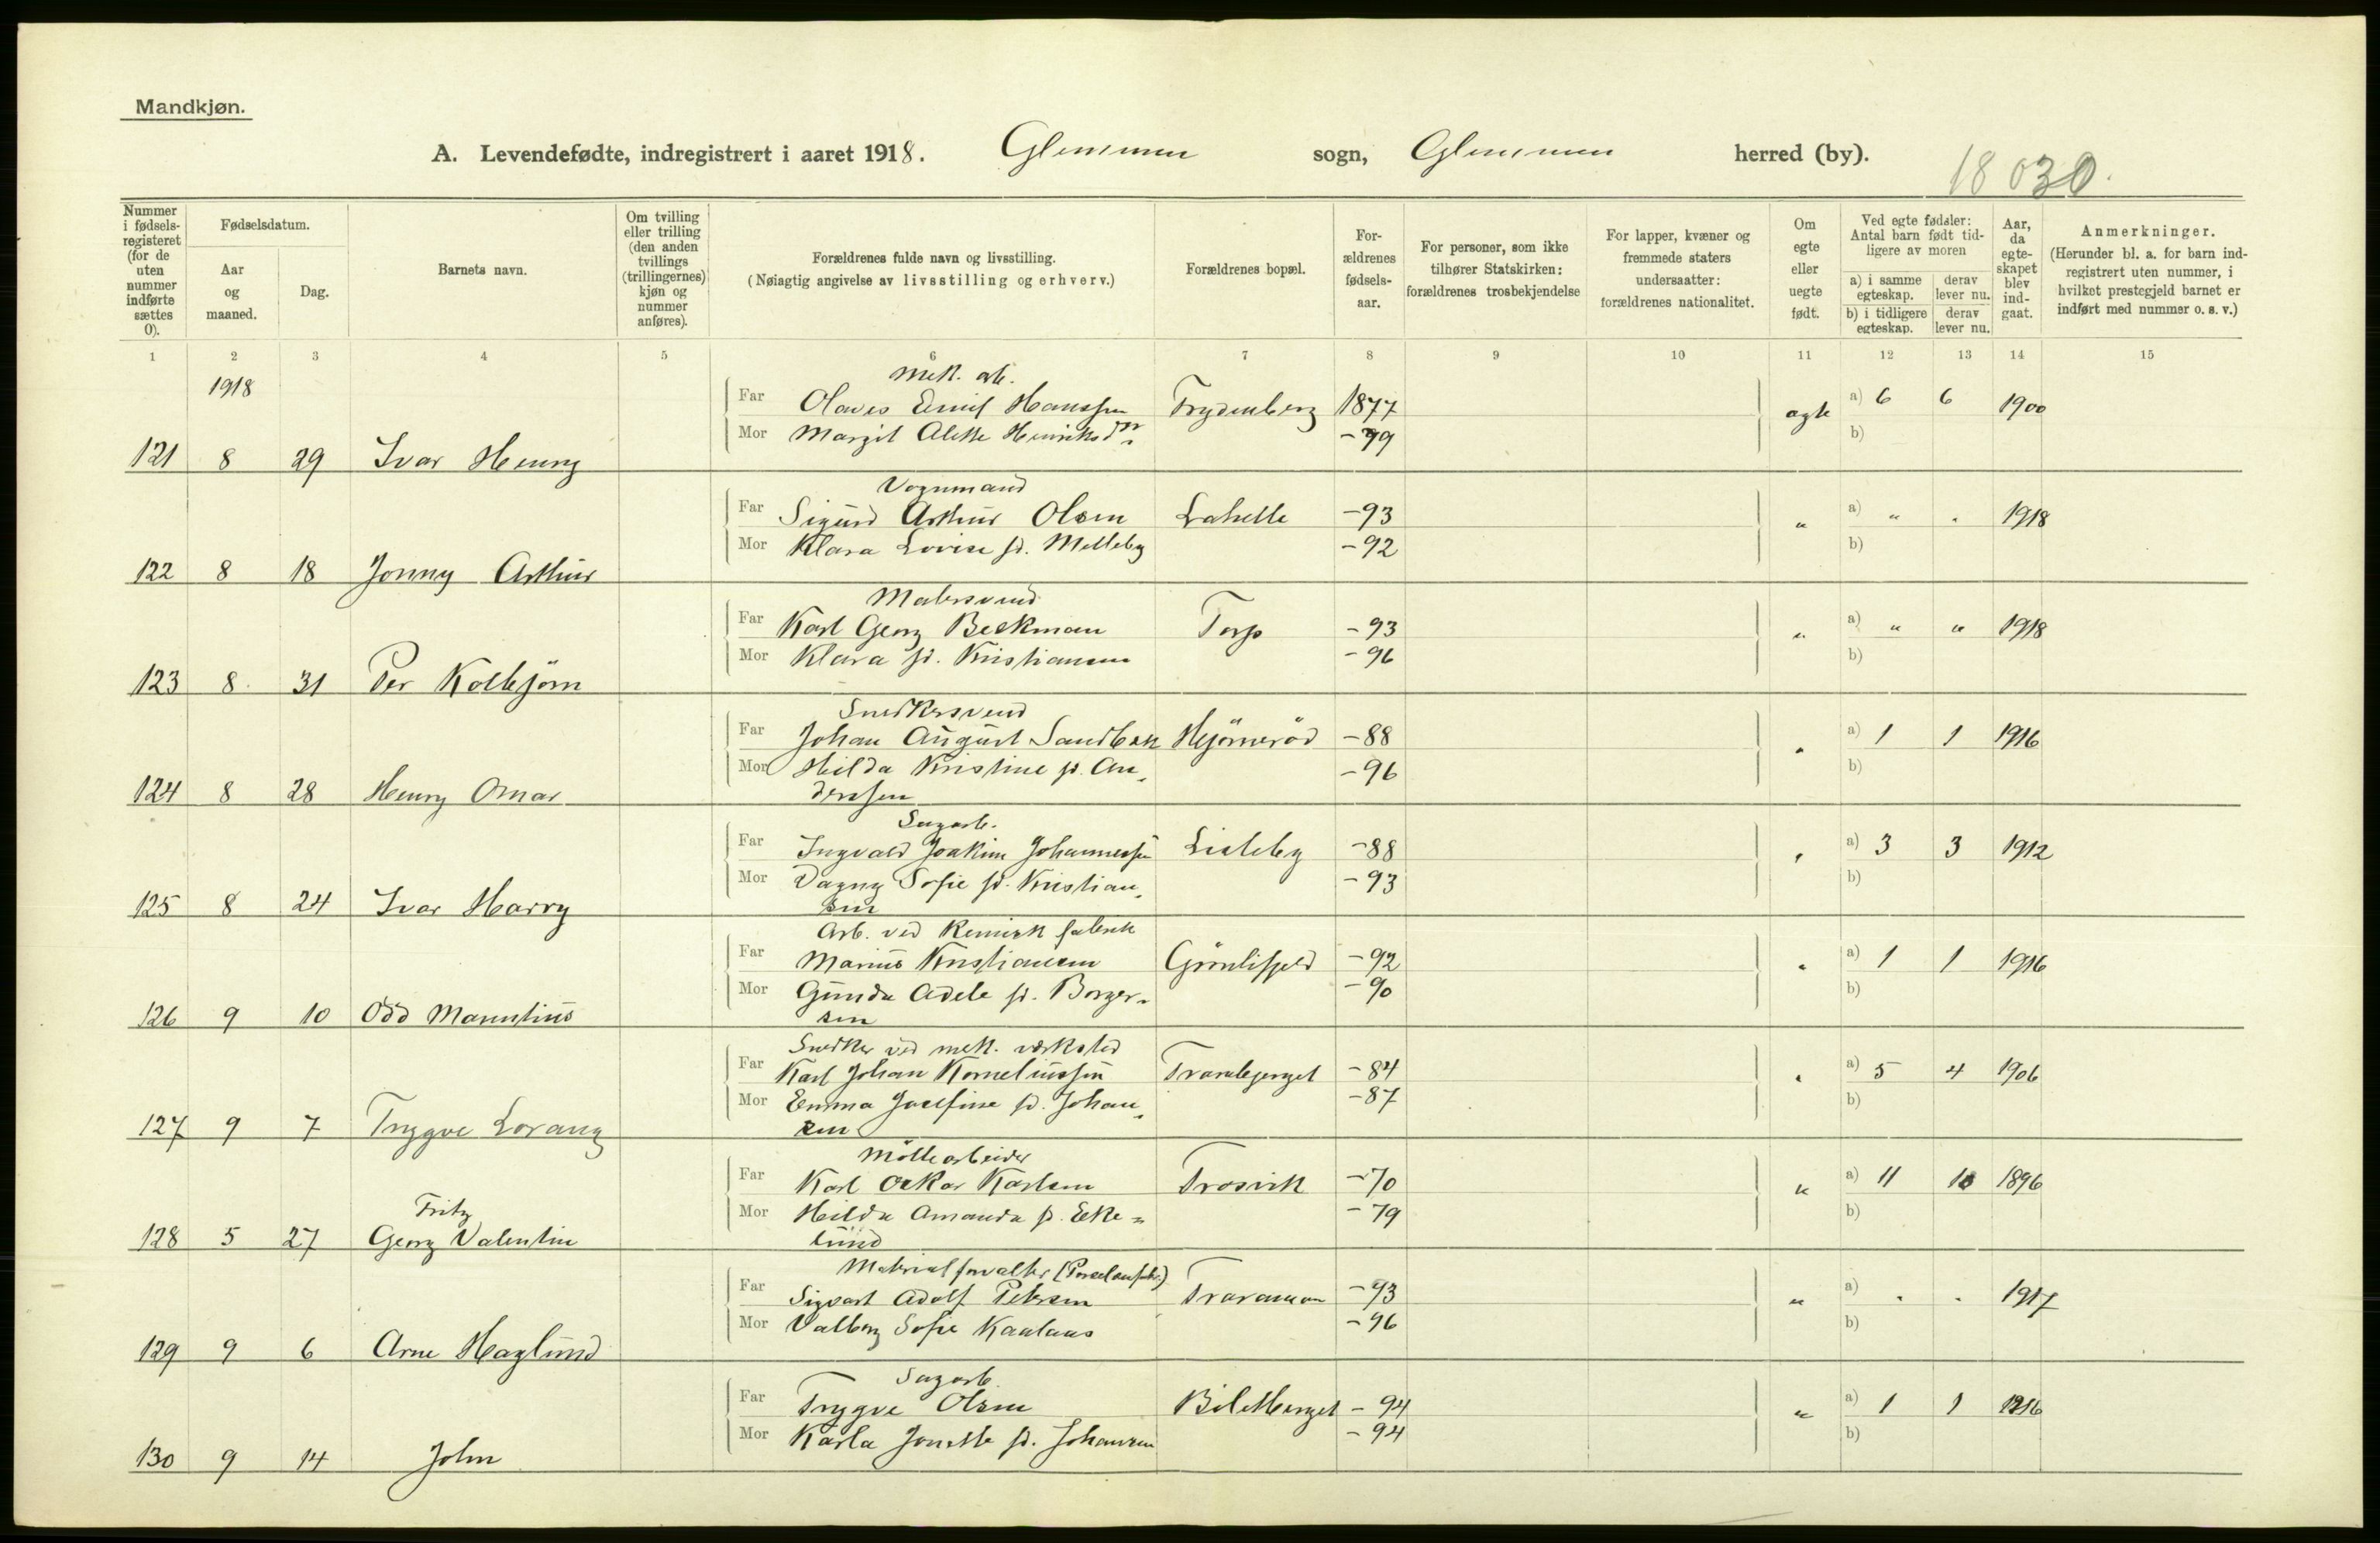 Mandkjøn.
A. Levendefødte, indregistrert i aaret 1918. Glemmen sogn, Glemmen herred (by).
18 030.
Nummer i fødselsregisteret (for de uten nummer indførte sættes 0).
Fødselsdatum.
Aar og maaned.
Dag.
Barnets navn.
Om tvilling eller trilling (den anden tvillings (trillingernes) kjøn og nummer anføres).
Forældrenes fulde navn og livsstilling.
(Nøiagtig angivelse av livsstilling og erhverv.)
Forældrenes bopæl.
Forældrenes fødselsaar.
For personer, som ikke tilhører Statskirken: forældrenes trosbekjendelse
For lapper, kvæner og fremmede staters undersaatter: forældrenes nationalitet.
Om egte eller uegte født.
Ved egte fødsler: Antal barn født tidligere av moren
a) i samme egteskap. derav lever nu.
b) i tidligere egteskap. derav lever nu.
Aar, da egteskapet blev indgaat.
Anmerkninger.
(Herunder bl. a. for barn indregistrert uten nummer, i hvilket prestegjeld barnet er indført med nummer o. s. v.)
1 2 3 4 5 6 7 8 9 10 11 12 13 14 15
1918
Mek. arb.
Far Olaves Emil Hanssen Trydenberg 1877 egte a) 6 6 1900
Mor Margit Alette Henriksd. -79 b)
121 8 29 Ivar Henry
Vognmand
Far Sigurd Arthur Olsen Lahelle -93 " a) " " 1918
Mor Klara Lovise fd. Melleby -92 b)
122 8 18 Jonny Arthur
Malersvend
Far Karl Georg Beckman Torp -93 " a) " " 1918
Mor Klara fd. Kristiansen -96 b)
123 8 31 Per Kolbjörn
Snedkersvend
Far Johan August Sandbæk Hjörneröd -88 " a) 1 1 1916
Mor Hilda Kristine fd. An- -96 b)
derssen
124 8 28 Henry Omar
Sagarb.
Far Ingvald Joakim Johannessen Lisleby -88 " a) 3 3 1912
Mor Dagny Sofie fd. Kristian- -93 b)
sen
125 8 24 Ivar Harry
Arb. ved kemisk fabrik
Far Marius Kristiansen Grönlifjeld -92 " a) 1 1 1916
Mor Gunda Adele fd. Borger- -90 b)
sen
126 9 10 Odd
Snedker ved mek. værksted
Far Karl Johan Korneliussen Traraberget -84 " a) 5 4 1906
Mor Emma Josefine fd. Johan- -87 b)
sen
127 9 7 Trygve Lorang
Möllearbeider
Far Karl Oskar Karlsen Trosvik -70 " a) 11 10 1896
Mor Hilda Amanda fd. Eke- -79 b)
lund
Fritz
128 5 27 Georg Valentin
Materialforvalter (Porcelænsfabr.)
Far Sigvart Adolf Petersen -93 " a) " " 1917
Mor Valborg Sofie -96 b)
129 9 6 Arne Haglund
Sagarb.
Far Trygve Olsen Biletberget -94 " a) 1 1 1916
Mor Karla Jonette fd. Johansen -94 b)
130 9 14 John